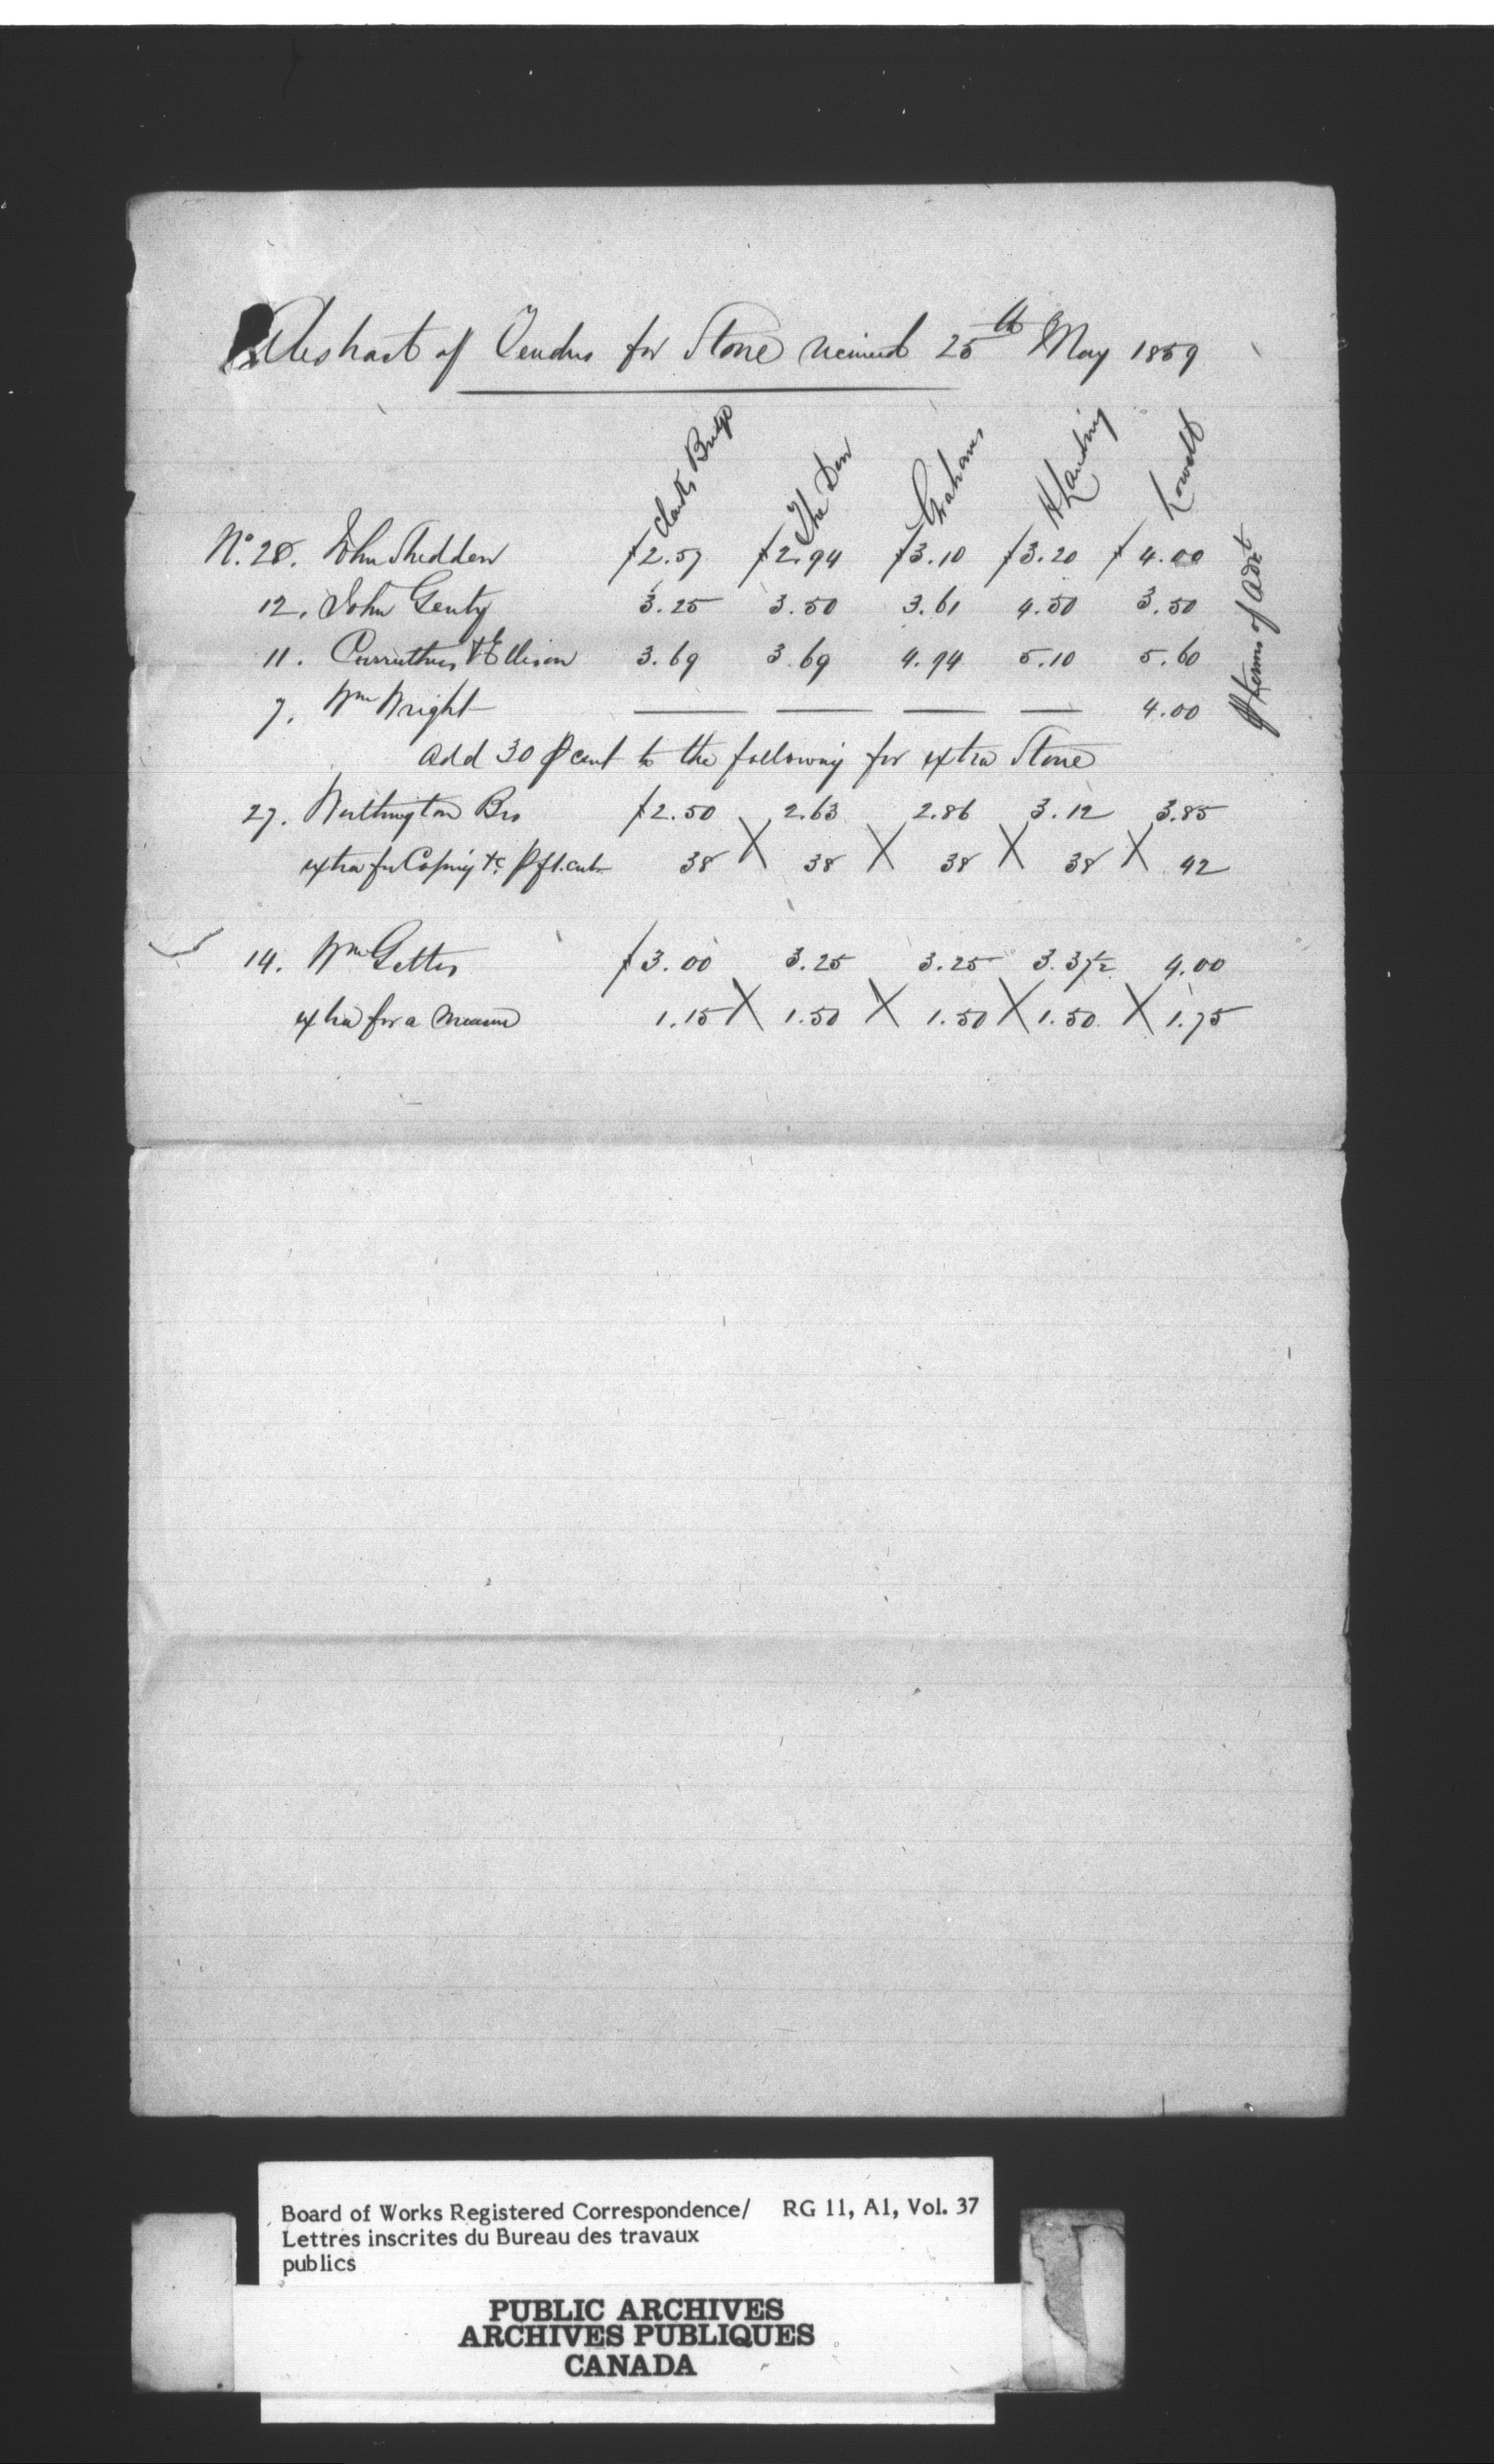 Abstract of Tenders for Stone received 25th May 1859
Clarks Bridge The Den Grahams H Landing Lowell
No. 28. John Shedden $2.57 $2.94 $3.10 $3.20 $4.00
12. John Genty 3.25 3.50 3.61 4.50 3.50
11. Carruthers & Ellison 3.69 3.69 4.94 5.10 5.60
7. Wm Wright — — — — 4.00
terms of Advt
add 30 P cent to the following for extra Stone
27. Worthington Bro $2.50 2.63 2.86 3.12 3.85
extra for Coping &c P ft. cub. 38 X 38 X 38 X 38 X 42
14. Wm Gettes $3.00 3.25 3.25 3.37½ 4.00
extra for a measure 1.15 X 1.50 X 1.50 X 1.50 X 1.75
Board of Works Registered Correspondence/ RG 11, A1, Vol. 37
Lettres inscrites du Bureau des travaux
publics
PUBLIC ARCHIVES
ARCHIVES PUBLIQUES
CANADA